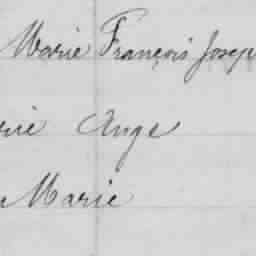 Marie François Josep
rie Ange
Marie